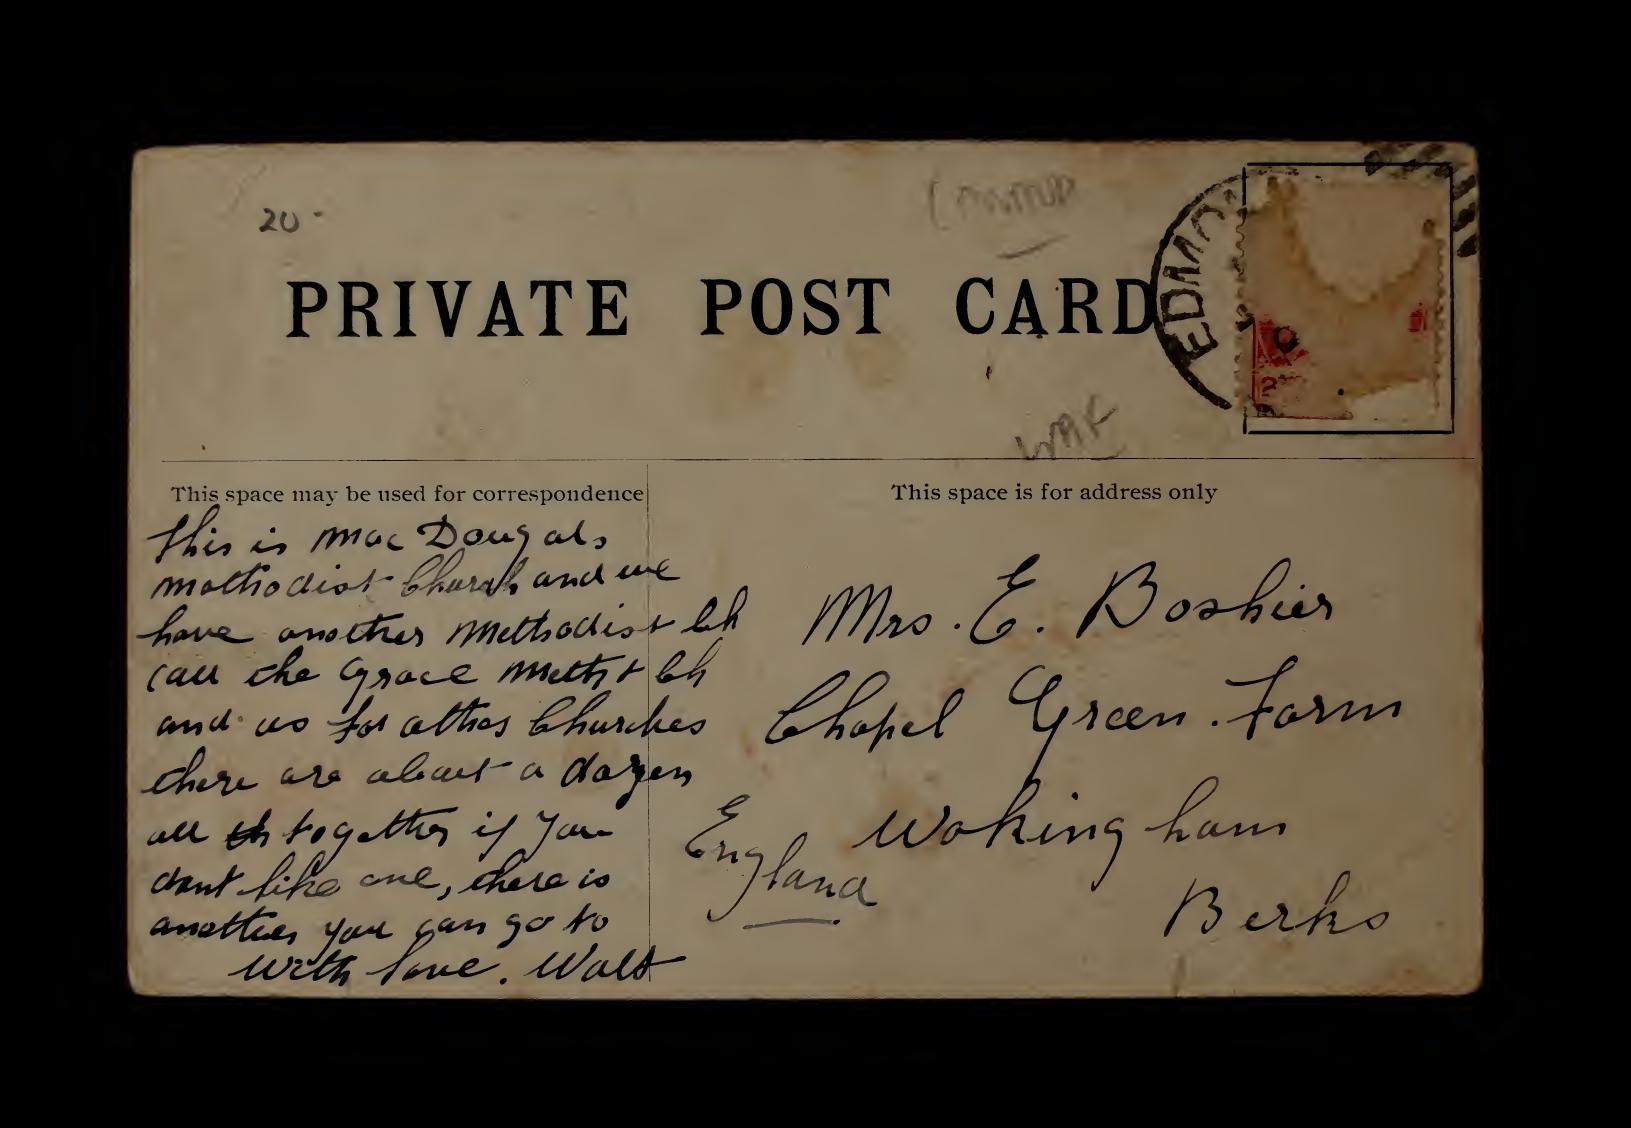 20-
PRIVATE POST CARD
EDMO
2
This space may be used for correspondence
This space is for address only
This is Mac Dougals
Methodist Church and we
have another Methodist Ch
call the Grace Methst Ch
and as for other Churches
there are about a dozen
all th together if you
dont like one, there is
another you can go to
With love. Walt
Mrs. E. Boshier
Chapel Green. Farm
Wokingham
Berks
England